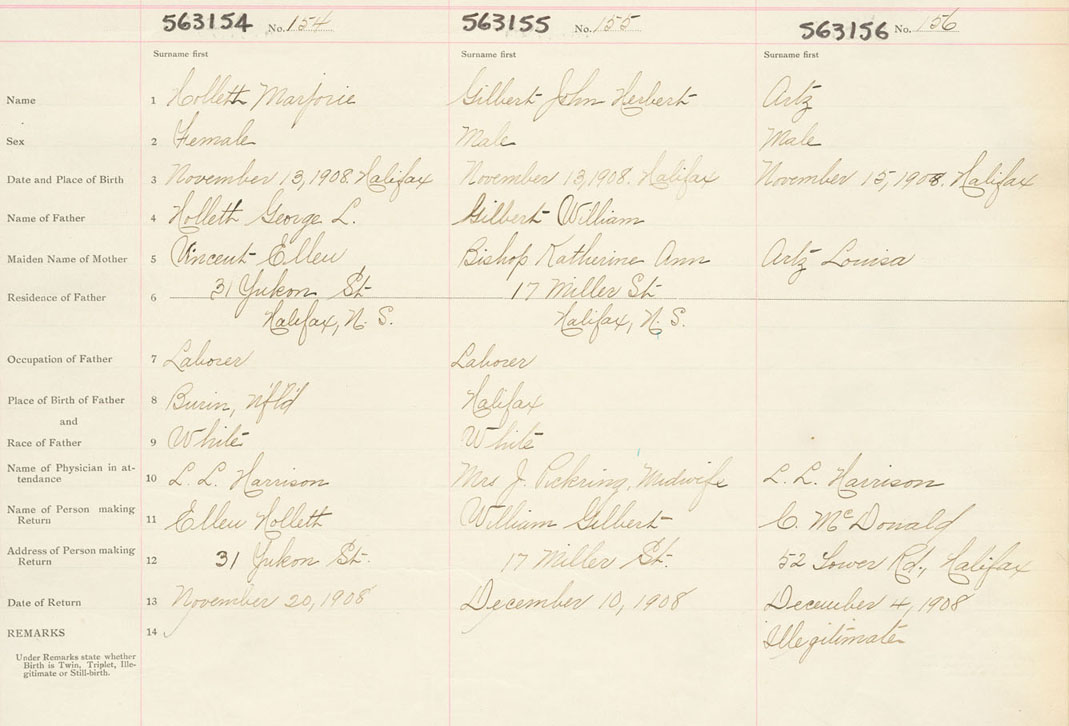 563154 No. 154 563155 No. 155 563156 No. 156
Surname first Surname first Surname first
Name 1 Holleth Marjorie Gilbert John Herbert Artz
Sex 2 Female Male Male
Date and Place of Birth 3 November 13, 1908. Halifax November 13, 1908. Halifax November 15, 1908. Halifax
Name of Father 4 Holleth George L. Gilbert William
Maiden Name of Mother 5 Vincent Ellen Bishop Katherine Ann Artz Louisa
Residence of Father 6 31 Yukon St. 17 Miller St.
Halifax, N. S. Halifax, N. S.
Occupation of Father 7 Laborer Laborer
Place of Birth of Father 8 Burin, Nfld Halifax
and
Race of Father 9 White White
Name of Physician in at-
tendance 10 L. L. Harrison Mrs J. Pickring, Midwife L. L. Harrison
Name of Person making
Return 11 Ellen Holleth William Gilbert C. McDonald
Address of Person making
Return 12 31 Yukon St. 17 Miller St. 52 Lower Rd., Halifax
Date of Return 13 November 20, 1908 December 10, 1908 December 4, 1908
REMARKS 14 Illegitimate
Under Remarks state whether
Birth is Twin, Triplet, Ille-
gitimate or Still-birth.